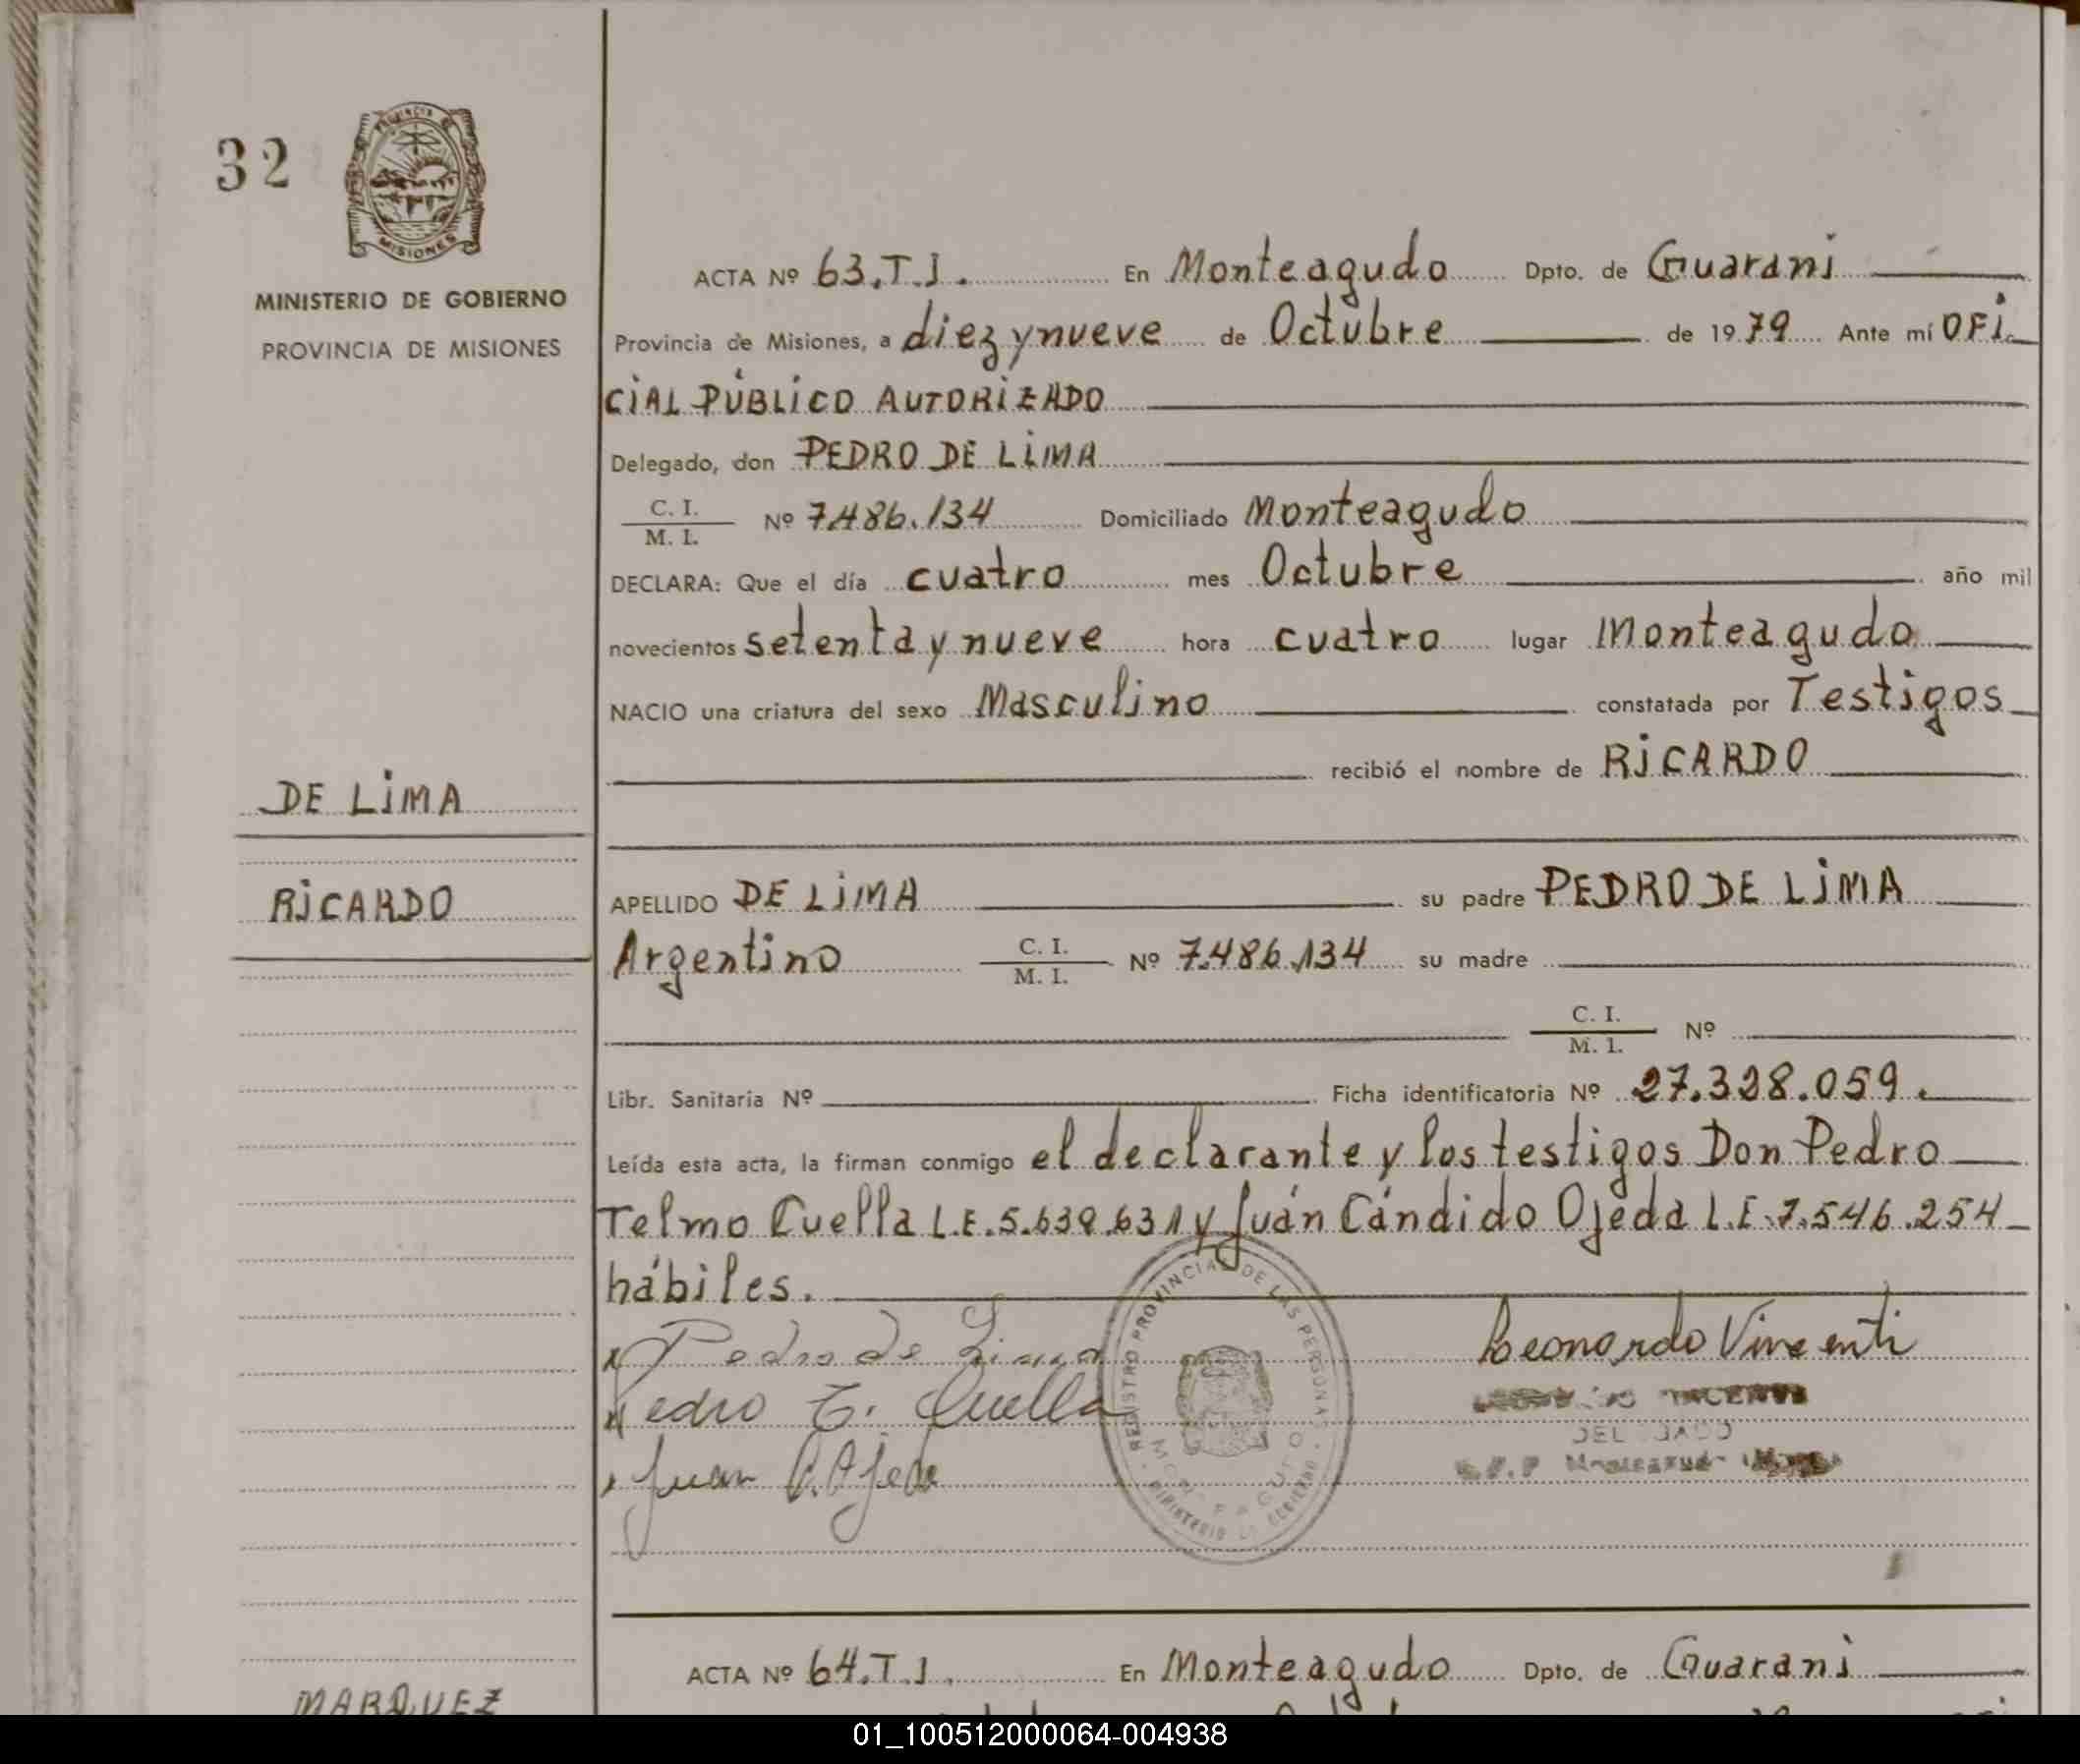 32
MISIONES
MINISTERIO DE GOBIERNO
PROVINCIA DE MISIONES
ACTA Nº 63.T.I. En Monteagudo Dpto. de Guarani
Provincia de Misiones, a diez y nueve de Octubre de 1979 Ante mí OFi
CiAL PÚBLiCO AUTORiZADO
Delegado, don PEDRO DE LiMA
C. I.
M. I. Nº 7.486.134 Domiciliado Monteagudo
DECLARA: Que el día cuatro mes Octubre año mil
novecientos setenta y nueve hora cuatro lugar Monteagudo
NACIO una criatura del sexo Masculino constatada por Testigos
recibió el nombre de RiCARDO
DE LiMA
RiCARDO
APELLIDO DE LiMA su padre PEDRO DE LiMA
Argentino C. I.
M. I. Nº 7.486.134 su madre
C. I.
M. I. Nº
Libr. Sanitaria Nº Ficha identificatoria Nº 27.328.059.
Leída esta acta, la firman conmigo el declarante y los testigos Don Pedro
Telmo Cuella L.E. 5.639.631 y Juán Cándido Ojeda L.E. 7.546.254
hábiles.
REGISTRO PROVINCIAL DE LAS PERSONAS
MINISTERIO DE GOBIERNO
MONTEAGUDO
x Pedro de Lima
x Pedro T. Cuella
x Juan C. Ojeda
Leonardo Vincenti
DELEGADO
ACTA Nº 64.T.I. En Monteagudo Dpto. de Guarani
MARQUEZ
01_100512000064-004938